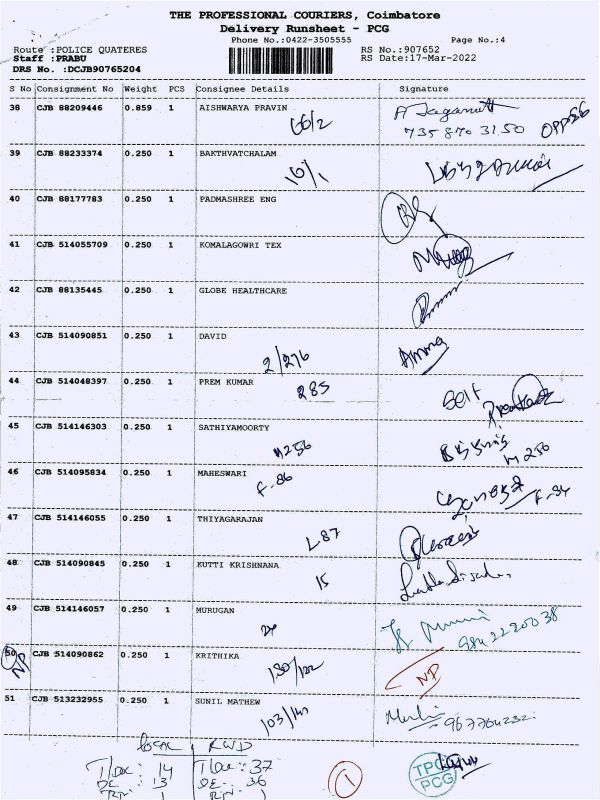 THE PROFESSIONAL COURIERS, Coimbatore
Delivery Runsheet - PCG
Phone No.:0422-3505555 Page No.:4
Route :POLICE QUATERES RS No.:907652
Staff :PRABU RS Date:17-Mar-2022
DRS No. :DCJB90765204
S No Consignment No Weight PCS Consignee Details Signature
38 CJB 88209446 0.859 1 AISHWARYA PRAVIN
66/2 735 870 3150
39 CJB 88233374 0.250 1 BAKTHVATCHALAM
16/1
40 CJB 88177783 0.250 1 PADMASHREE ENG
41 CJB 514055709 0.250 1 KOMALAGOWRI TEX
42 CJB 88135445 0.250 1 GLOBE HEALTHCARE
43 CJB 514090851 0.250 1 DAVID
2/276 Amma
44 CJB 514048397 0.250 1 PREM KUMAR
285 Self
45 CJB 514146303 0.250 1 SATHIYAMOORTY
M 250
46 CJB 514095834 0.250 1 MAHESWARI
F-86
47 CJB 514146055 0.250 1 THIYAGARAJAN
L87
48 CJB 514090845 0.250 1 KUTTI KRISHNANA
15
49 CJB 514146057 0.250 1 MURUGAN
984 2220038
50 CJB 514090862 0.250 1 KRITHIKA
NP 130/122 NP
51 CJB 513232955 0.250 1 SUNIL MATHEW
103/
Local RWD
T/Doc: 14 T/Doc: 37
DE: 13 DE: 36
RTN: 1 RTN: 1
1
TPC
PCG